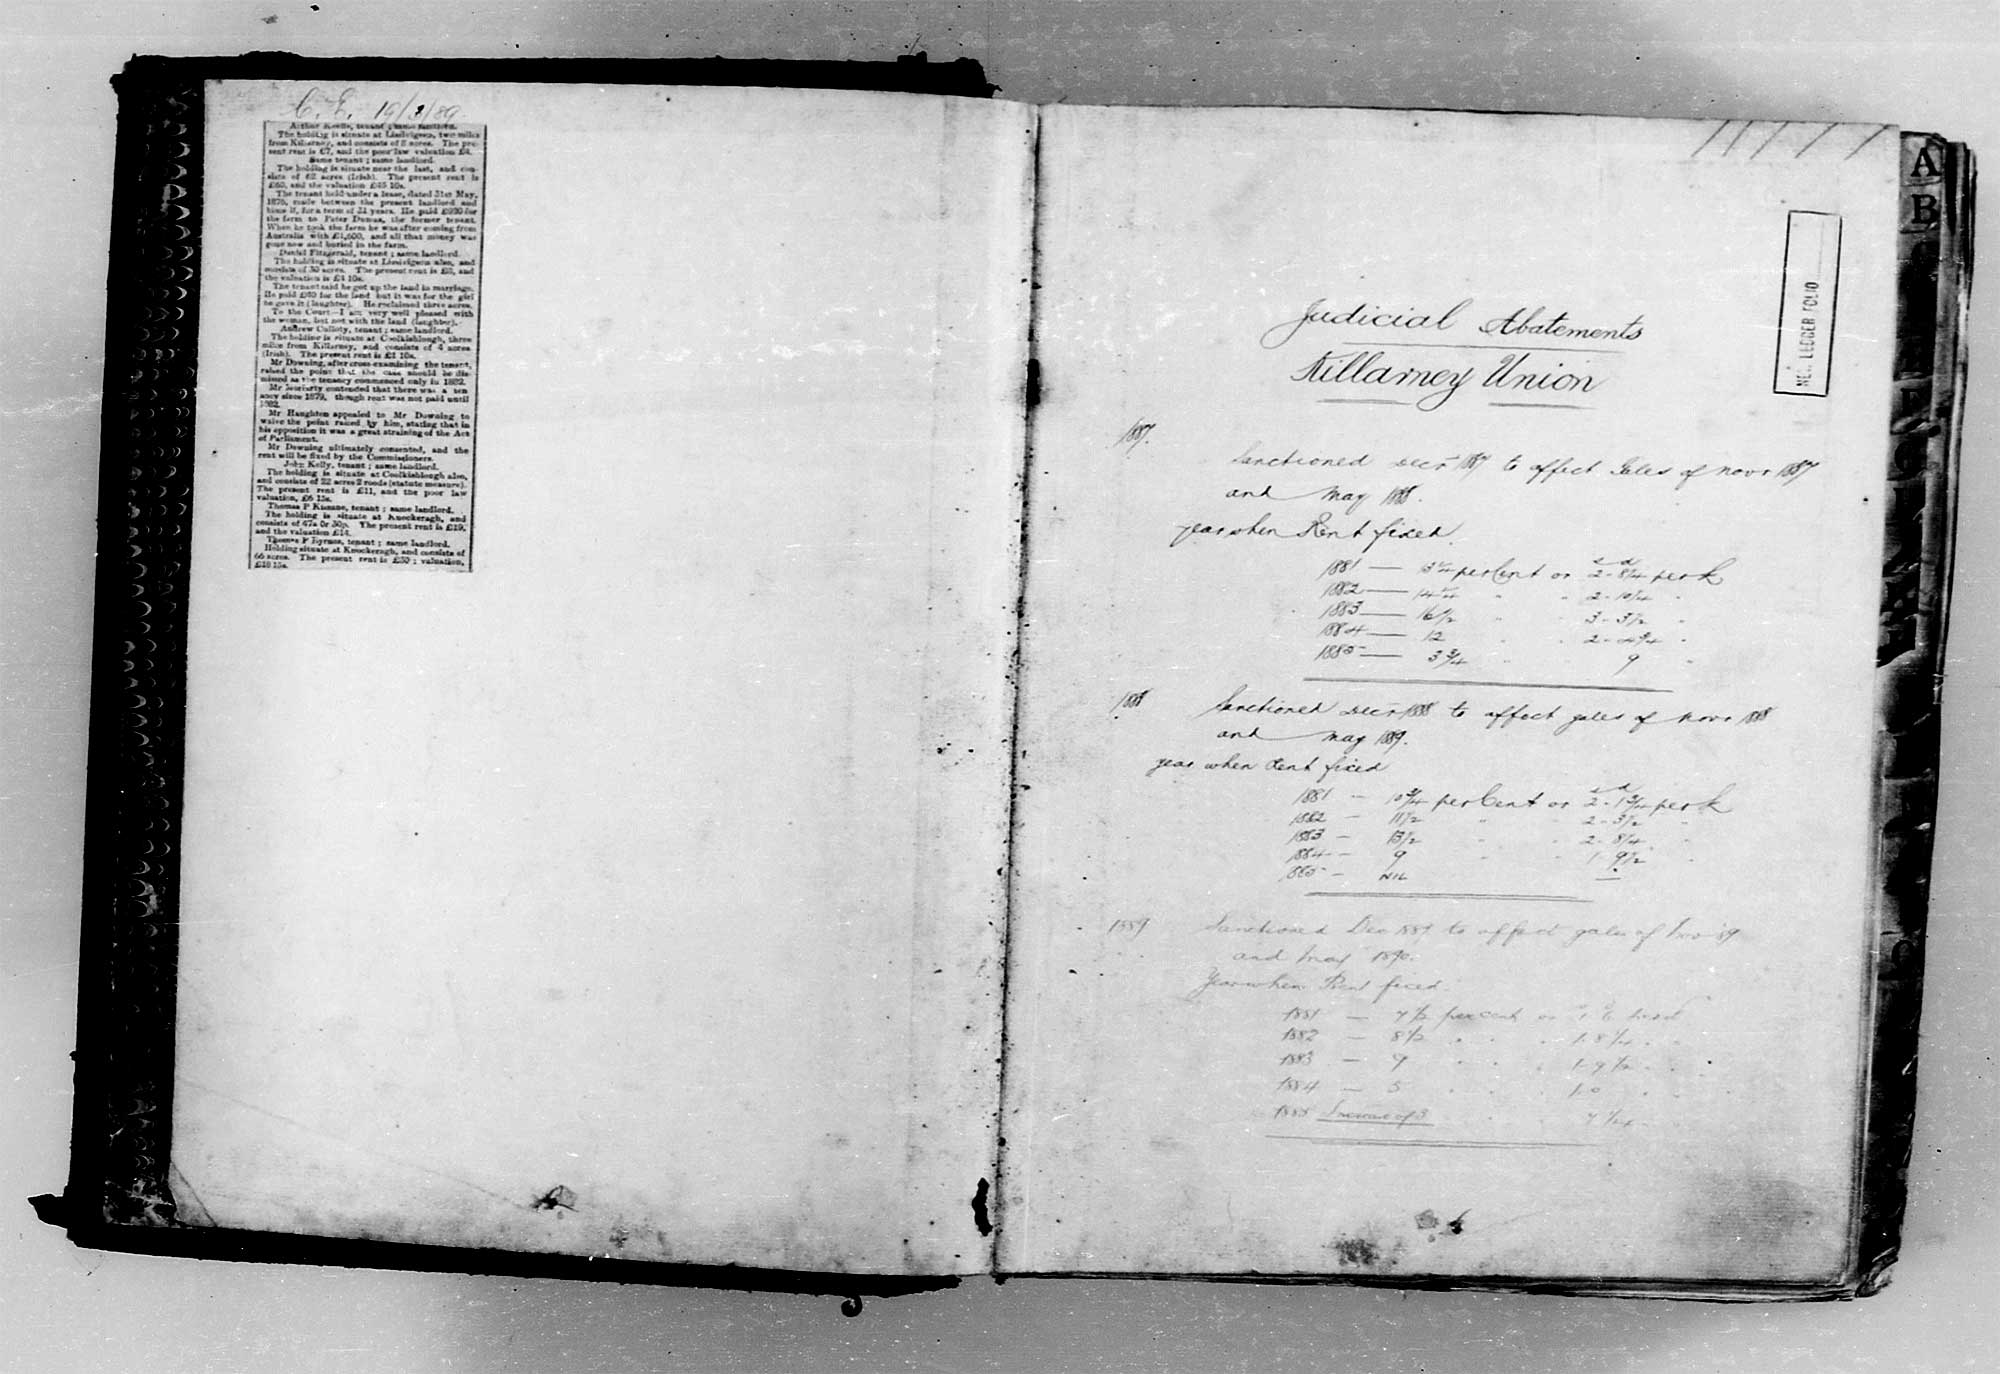 C. E. 19/3/89.
Arthur Keeffe, tenant; same landlord.
The holding is situate at Lissivigeen, two miles
from Killarney, and consists of 8 acres. The pre-
sent rent is £7, and the poor law valuation £4.
Same tenant; same landlord.
The holding is situate near the last, and con-
sists of 62 acres (Irish). The present rent is
£60, and the valuation £45 10s.
The tenant held under a lease, dated 31st May,
1876, made between the present landlord and
himself, for a term of 31 years. He paid £920 for
the farm to Peter Dumas, the former tenant.
When he took the farm he was after coming from
Australia with £1,600, and all that money was
gone now and buried in the farm.
Daniel Fitzgerald, tenant; same landlord.
The holding is situate at Lissivigeen also, and
consists of 30 acres. The present rent is £8, and
the valuation is £4 10s.
The tenant said he got up the land in marriage.
He paid £80 for the land but it was for the girl
he gave it (laughter). He reclaimed three acres.
To the Court—I am very well pleased with
the woman, but not with the land (laughter).
Andrew Culloty, tenant; same landlord.
The holding is situate at Coolkishlough, three
miles from Killarney, and consists of 4 acres
(Irish). The present rent is £1 10s.
Mr Downing, after cross-examining the tenant,
raised the point that the case should be dis-
missed as the tenancy commenced only in 1882.
Mr Moriarty contended that there was a ten
ancy since 1879, though rent was not paid until
1882.
Mr Haughton appealed to Mr Downing to
waive the point raised by him, stating that in
his opposition it was a great straining of the Act
of Parliament.
Mr Downing ultimately consented, and the
rent will be fixed by the Commissioners.
John Kelly, tenant; same landlord.
The holding is situate at Coolkishlough also,
and consists of 22 acres 2 roods (statute measure).
The present rent is £11, and the poor law
valuation, £6 15s.
Thomas P Kinane, tenant; same landlord.
The holding is situate at Knockeragh, and
consists of 47a 0r 30p. The present rent is £19,
and the valuation £14.
Thomas P Byrnes, tenant; same landlord.
Holding situate at Knockeragh, and consists of
66 acres. The present rent is £30; valuation,
£18 15s.
A
B
LEDGER FOLIO
Judicial Abatements
Killarney Union
1887.
Sanctioned Decr 1887 to affect Gales of Novr 1887
and May 1888.
year when Rent fixed.
s d
1881 — 13 1/4 per Cent or 2 - 8 1/4 per £
1882 — 14 1/4 " " 2 - 10 1/4 "
1883 — 16 1/2 " " 3 - 3 1/2 "
1884 — 12 " 2 - 4 3/4 "
1885 — 3 3/4 " 9 "
1888 Sanctioned Decr 1888 to affect gales of Novr 1888
and May 1889.
year when Rent fixed
s d
1881 - 10 3/4 per Cent or 2 - 1 3/4 per £
1882 - 11 1/2 " " 2 - 3 1/2 "
1883 - 13 1/2 " " 2 - 8 1/4 "
1884 - 9 " " 1 - 9 1/2 "
1885 - NIL —
1889 Sanctioned Dec 1889 to affect gales of Nov '89
and May 1890.
Year when Rent fixed.
1881 — 7 1/2 per cent or 1. 6
1882 — 8 1/2 " " 1. 8 1/4 "
1883 — 9 " " 1. 9 1/2 "
1884 — 5 " " 1. 0
1885 Increase of 3 " " 7 1/4